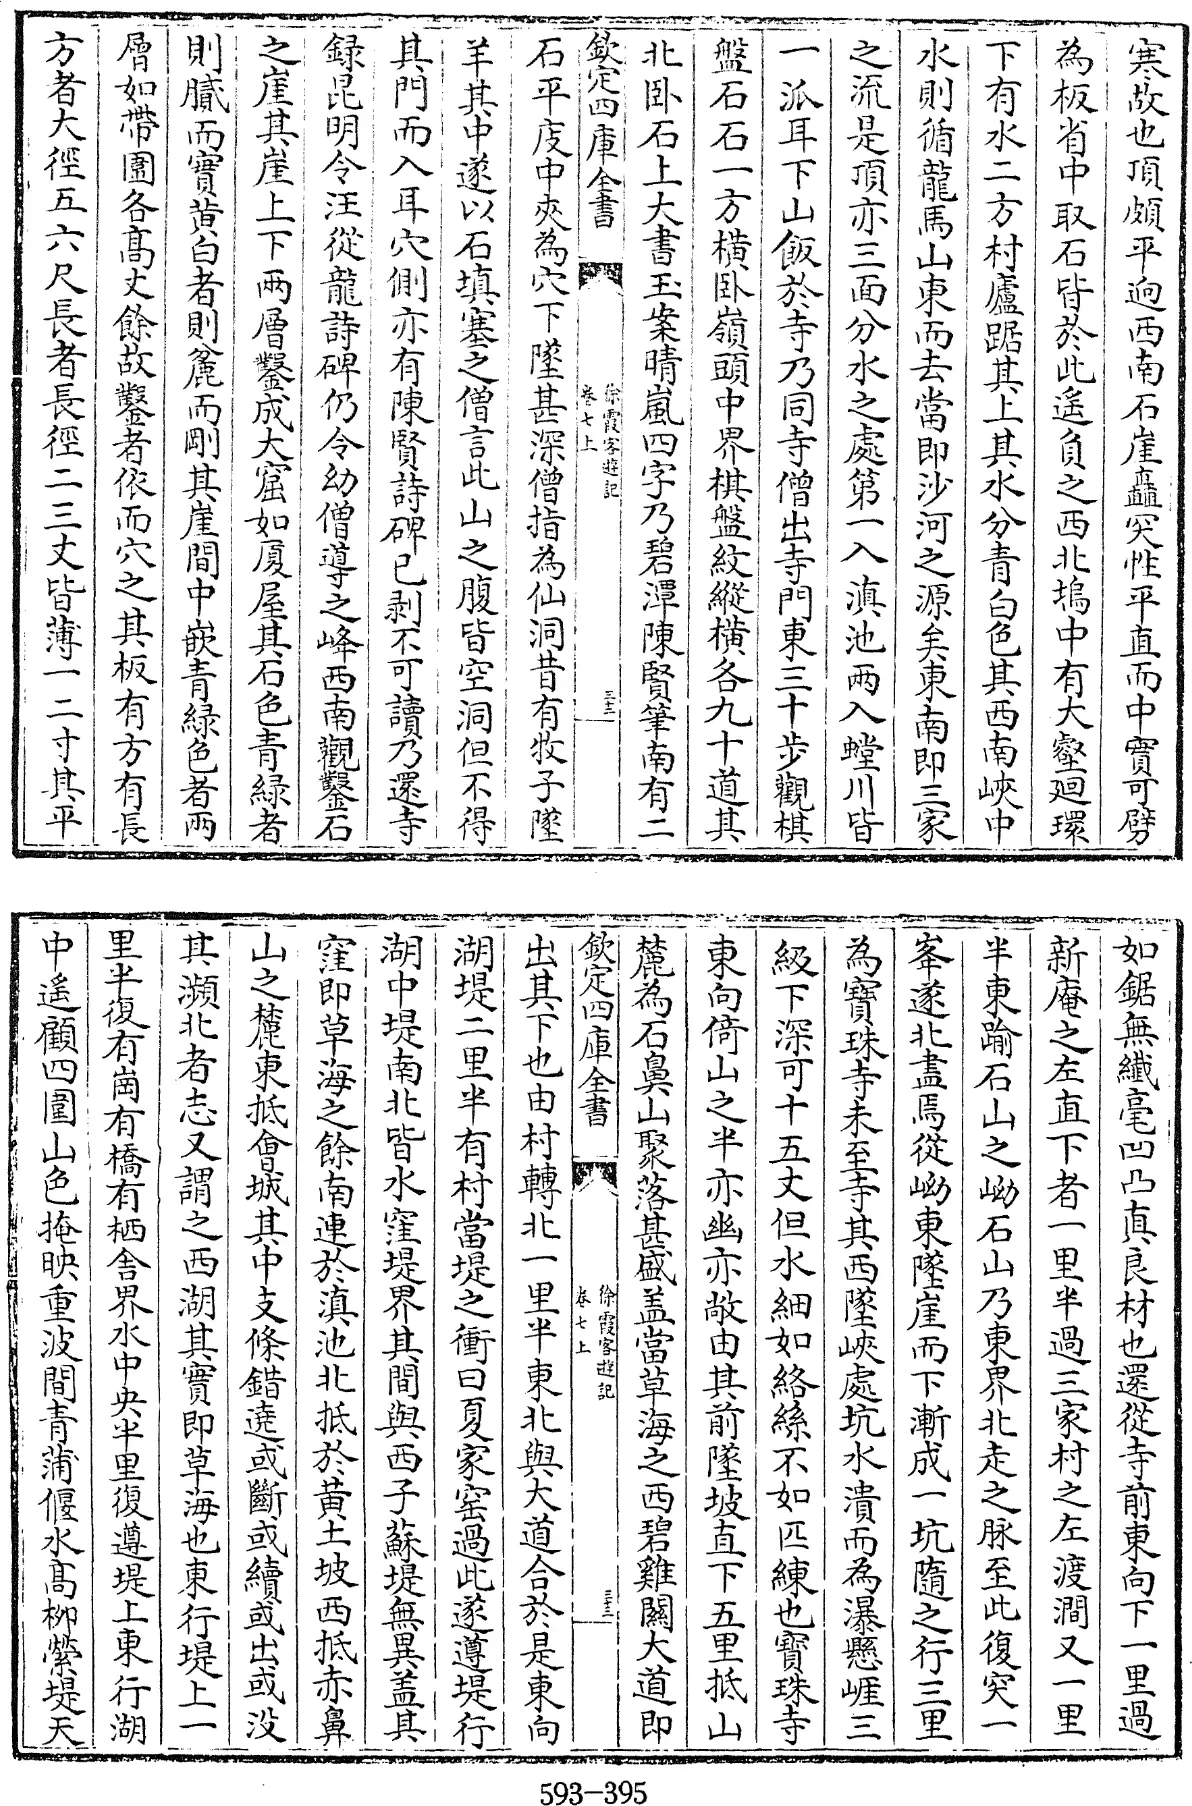 寒故也頂頗平逈西南石崖矗突性平直而中實可劈
為板省中取石皆於此遙負之西北塢中有大壑廻環
下有水二方村廬踞其上其水分青白色其西南峽中
水則循龍馬山東而去當即沙河之源矣東南即三家
之流是頂亦三面分水之處第一入滇池兩入螳川皆
一派耳下山飯於寺乃同寺僧出寺門東三十步觀棋
盤石石一方橫卧嶺頭中界棋盤紋縱橫各九十道其
北卧石上大書玉案晴嵐四字乃碧潭陳賢筆南有二
欽定四庫全書
徐霞客遊記
卷七上
三十二
石平庋中夾為穴下墜甚深僧指為仙洞昔有牧子墜
羊其中遂以石填塞之僧言此山之腹皆空洞但不得
其門而入耳穴側亦有陳賢詩碑已剥不可讀乃還寺
録昆明令汪從龍詩碑仍令幼僧導之峰西南觀鑿石
之崖其崖上下兩層鑿成大窟如厦屋其石色青緑者
則膩而實黄白者則麄而剛其崖間中嵌青緑色者兩
層如帶圍各髙丈餘故鑿者依而穴之其板有方有長
方者大徑五六尺長者長徑二三丈皆薄一二寸其平
如鋸無纎毫凹凸真良材也還從寺前東向下一里過
新庵之左直下者一里半過三家村之左渡澗又一里
半東踰石山之岰石山乃東界北走之脉至此復突一
峯遂北盡焉從岰東墜崖而下漸成一坑隨之行三里
為寶珠寺未至寺其西墜峽處坑水潰而為瀑懸崕三
級下深可十五丈但水細如絡絲不如匹練也寶珠寺
東向倚山之半亦幽亦敞由其前墜坡直下五里抵山
麓為石鼻山聚落甚盛盖當草海之西碧雞闗大道即
欽定四庫全書
徐霞客遊記
卷七上
三十三
出其下也由村轉北一里半東北與大道合於是東向
湖堤二里半有村當堤之衝曰夏家窑過此遂遵堤行
湖中堤南北皆水窪堤界其間與西子蘇堤無異盖其
窪即草海之餘南連於滇池北抵於黄土坡西抵赤鼻
山之麓東抵會城其中支條錯遶或斷或續或出或没
其瀕北者志又謂之西湖其實即草海也東行堤上一
里半復有崗有橋有栖舍界水中央半里復遵堤上東行湖
中遥顧四圍山色掩映重波間青蒲偃水髙栁縈堤天
593-395